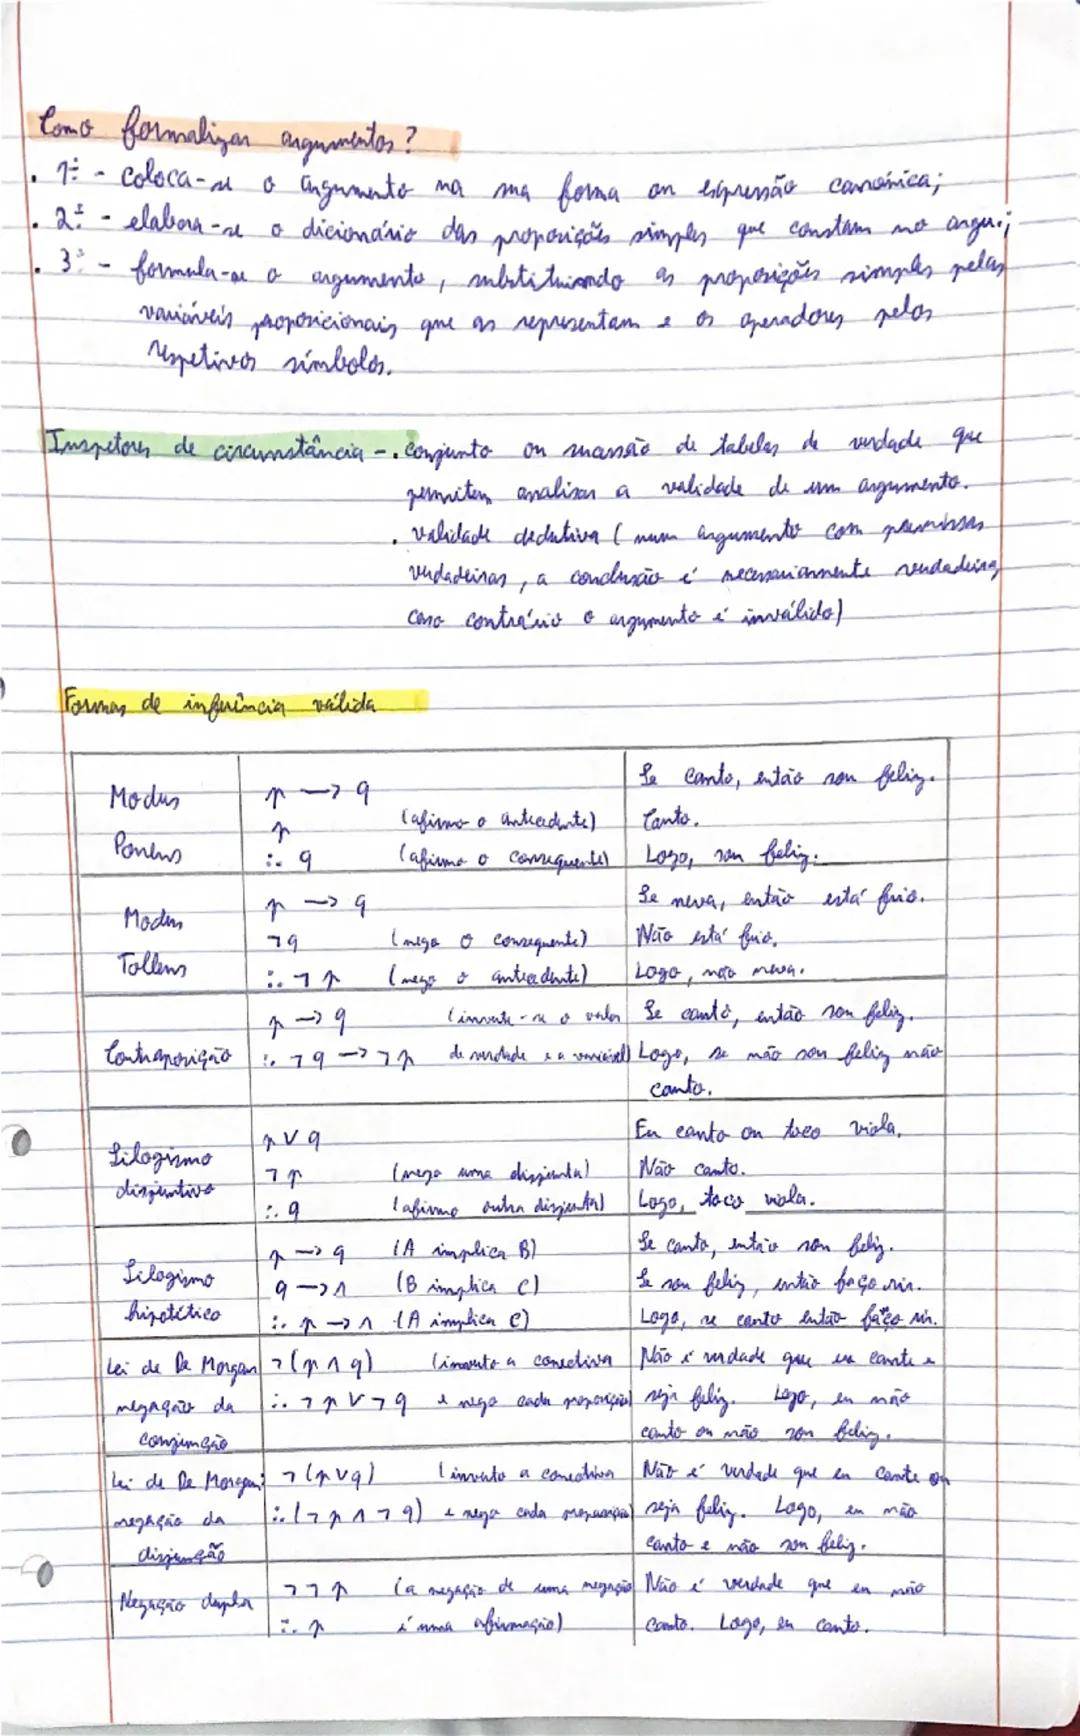 Como formalizar argumentos?
. 1º - coloca-se o argumento na sua forma ou expressão canónica;
. 2º - elabora-se o dicionário das proposições simples que constam no argu.;
. 3º - formula-se o argumento, substituindo as proposições simples pelas
variáveis proposicionais que as representam e os operadores pelos
respetivos símbolos.
Inspetores de circunstância - . conjunto ou sucessão de tabelas de verdade que
permitem analisar a validade de um argumento.
. validade dedutiva (num argumento com premissas
verdadeiras, a conclusão é necessariamente verdadeira,
caso contrário o argumento é inválido)
Formas de inferência válida
Modus
Ponens
p → q
p (afirmo o antecedente)
∴ q (afirmo o consequente)
Se canto, então sou feliz.
Canto.
Logo, sou feliz.
Modus
Tollens
p → q
¬q (nego o consequente)
∴ ¬p (nego o antecedente)
Se neva, então está frio.
Não está frio.
Logo, não neva.
Contraposição
p → q (inverte-se o valor
∴ ¬q → ¬p de verdade e a variável)
Se canto, então sou feliz.
Logo, se não sou feliz não
canto.
Silogismo
disjuntivo
p ∨ q
¬p (nego uma disjunta)
∴ q (afirmo outra disjunta)
Eu canto ou toco viola.
Não canto.
Logo, toco viola.
Silogismo
hipotético
p → q (A implica B)
q → r (B implica C)
∴ p → r (A implica C)
Se canto, então sou feliz.
Se sou feliz, então faço rir.
Logo, se canto então faço rir.
Lei de De Morgan
negação da
conjunção
¬(p ∧ q) (inverto a conectiva
∴ ¬p ∨ ¬q e nego cada proposição)
Não é verdade que eu cante e
seja feliz. Logo, eu não
canto ou não sou feliz.
Lei de De Morgan:
negação da
disjunção
¬(p ∨ q) (inverto a conectiva
∴ (¬p ∧ ¬q) e nego cada proposição)
Não é verdade que eu cante ou
seja feliz. Logo, eu não
canto e não sou feliz.
Negação dupla
¬¬p (a negação de uma negação
∴ p é uma afirmação)
Não é verdade que eu não
canto. Logo, eu canto.